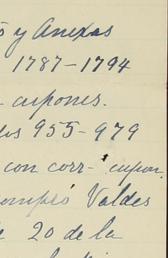 y Anexas
1787-1794
cupones.
955-979
con corr- cupon.
compró Valdes
20 de la